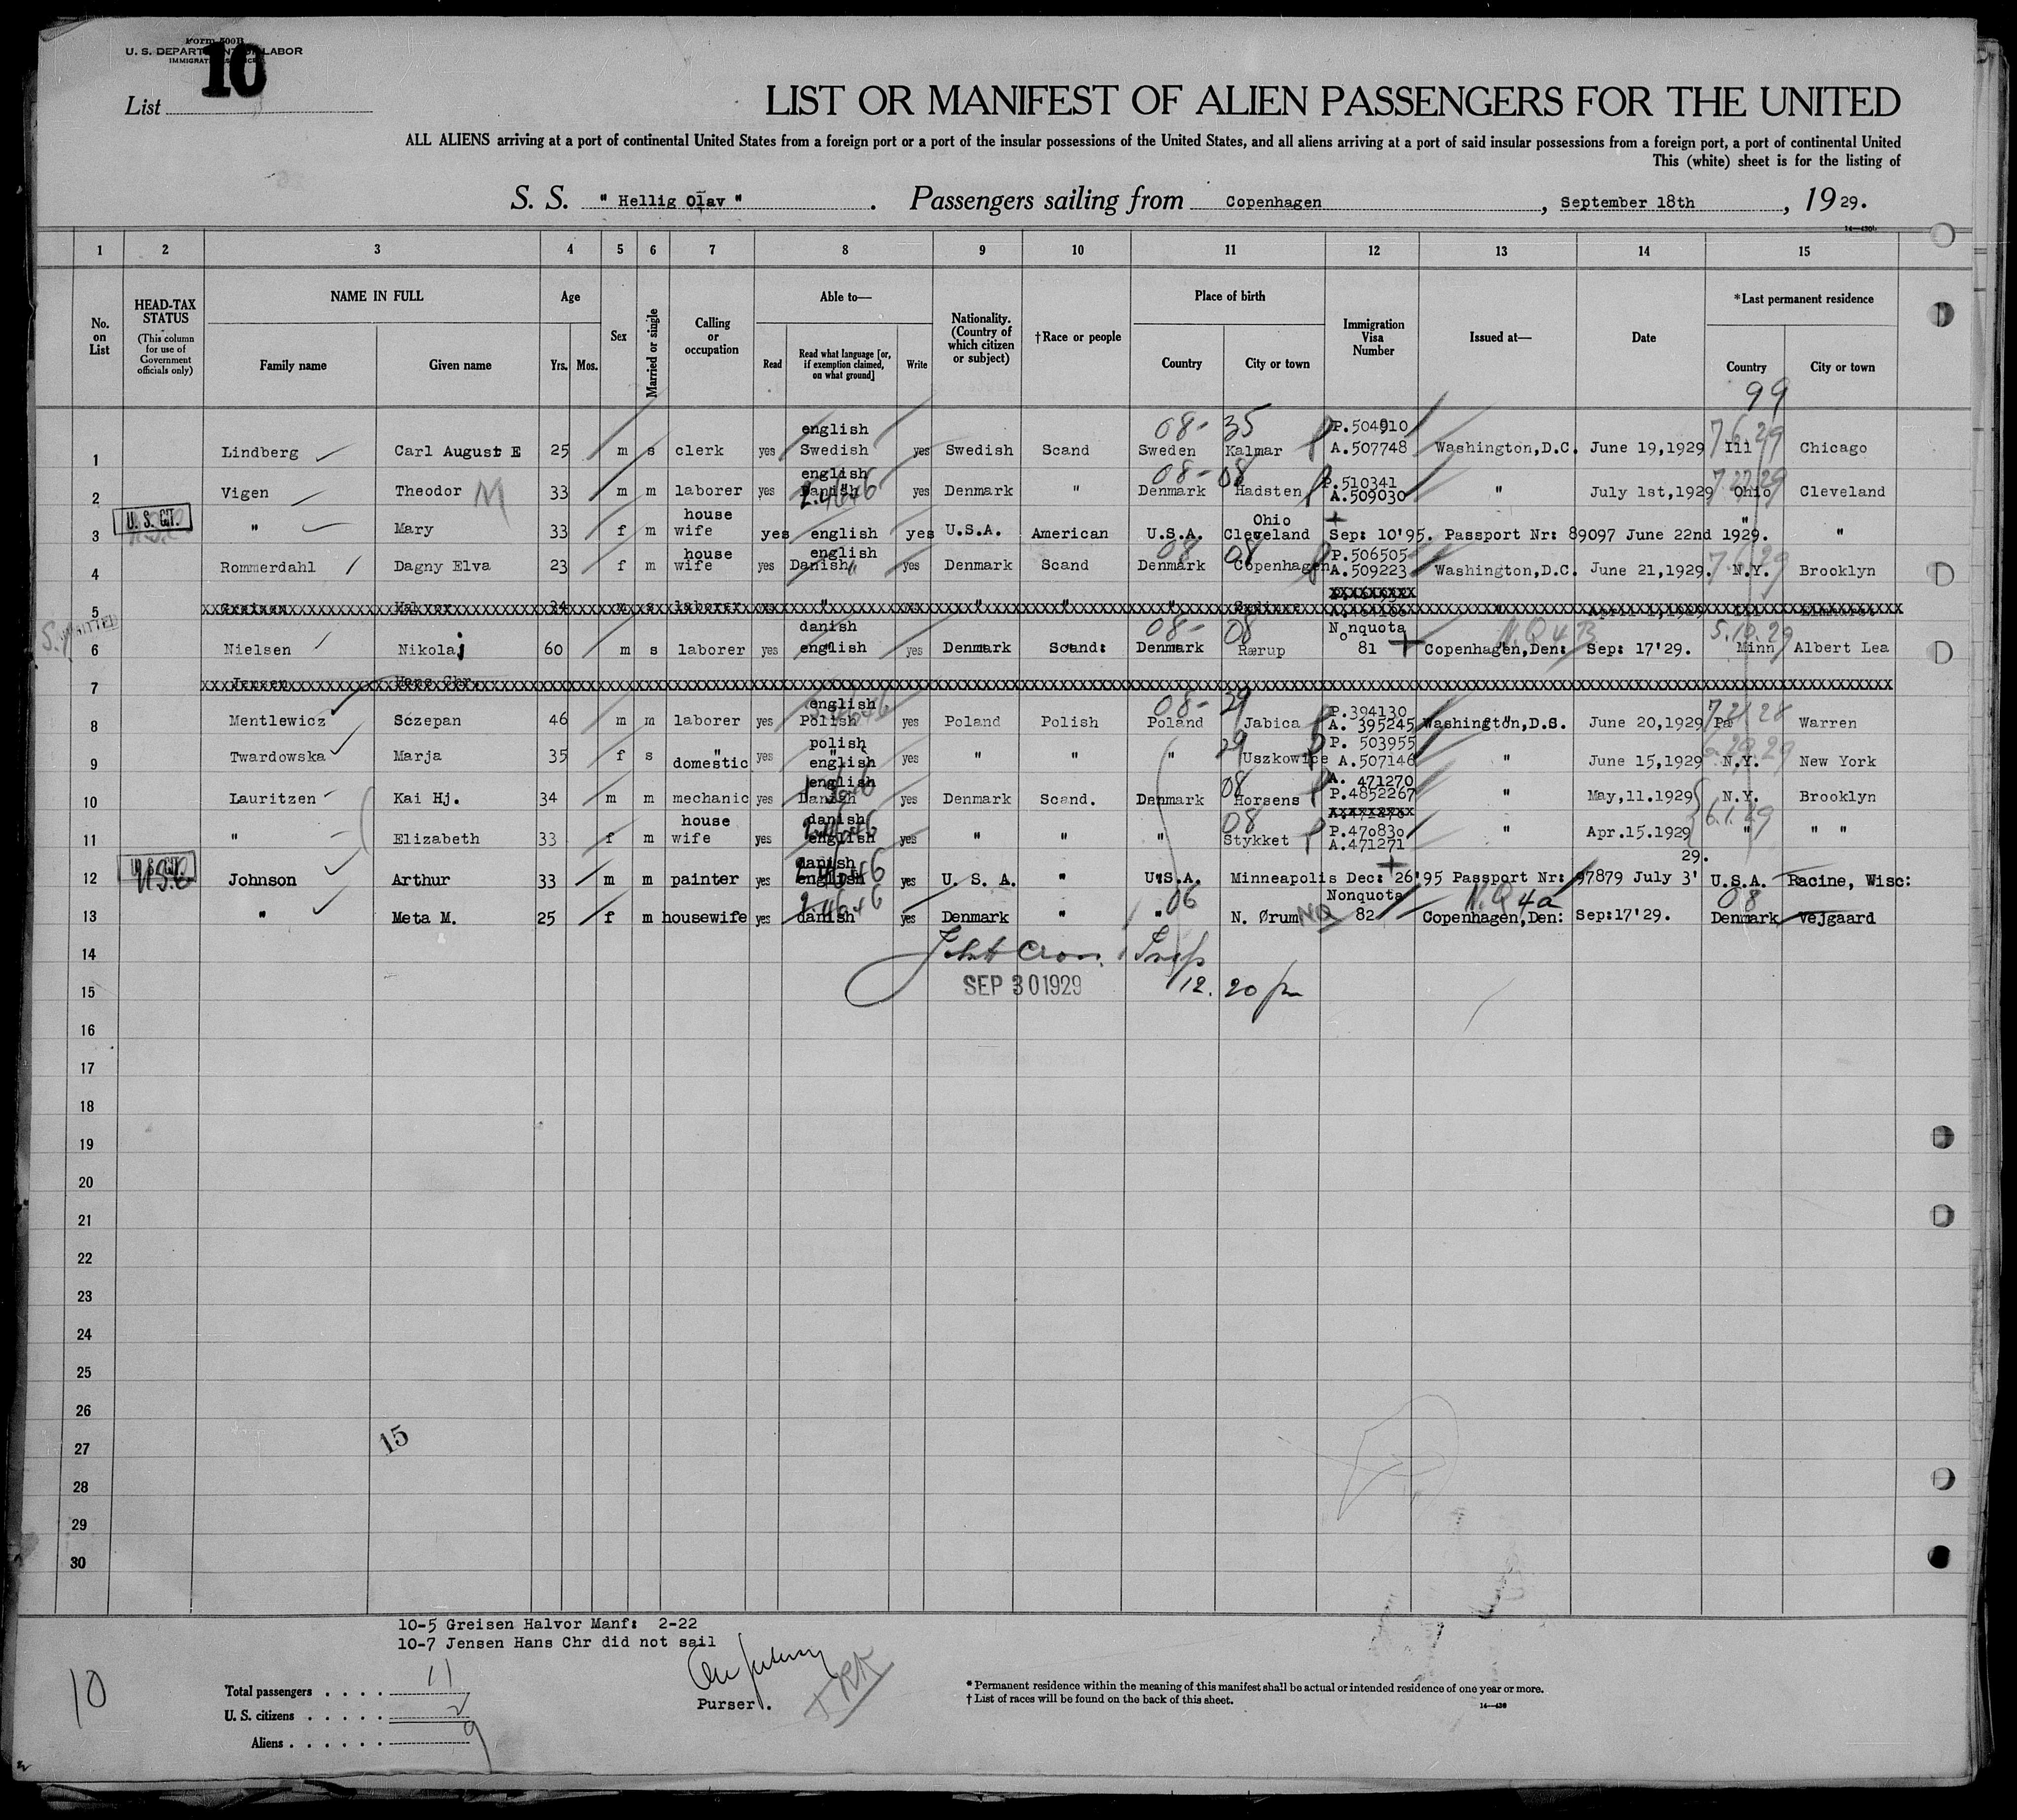 Form 500B
U. S. DEPARTMENT OF LABOR
IMMIGRATION SERVICE
10
List
LIST OR MANIFEST OF ALIEN PASSENGERS FOR THE UNITED
ALL ALIENS arriving at a port of continental United States from a foreign port or a port of the insular possessions of the United States, and all aliens arriving at a port of said insular possessions from a foreign port, a port of continental United
This (white) sheet is for the listing of
S. S. " Hellig Olav " . Passengers sailing from Copenhagen , September 18th , 19 29.
1 2 3 4 5 6 7 8 9 10 11 12 13 14 15
No. on List
HEAD-TAX STATUS (This column for use of Government officials only)
NAME IN FULL Family name Given name
Age Yrs. Mos.
Sex
Married or single
Calling or occupation
Able to— Read Read what language [or, if exemption claimed, on what ground] Write
Nationality. (Country of which citizen or subject)
†Race or people
Place of birth Country City or town
Immigration Visa Number
Issued at—
Date
*Last permanent residence Country City or town
99
08- 35 7.6.29
english P.504910
1 Lindberg Carl August E 25 m s clerk yes Swedish yes Swedish Scand Sweden Kalmar A.507748 Washington,D.C. June 19,1929 Ill Chicago
english 08- 08 P.510341
2 Vigen Theodor M 33 m m laborer yes Danish yes Denmark " Denmark Hadsten A.509030 " July 1st,1929 Ohio Cleveland
U. S. CIT. house Ohio "
3 " Mary 33 f m wife yes english yes U.S.A. American U.S.A. Cleveland Sep: 10'95. Passport Nr: 89097 June 22nd 1929. "
house english 08 08 P.506505
4 Rommerdahl Dagny Elva 23 f m wife yes Danish yes Denmark Scand Denmark Copenhagen A.509223 Washington,D.C. June 21,1929. N.Y. Brooklyn
5 Greisen Halvor 34 m s laborer " " " " " April 1,1929 Ill Elmhurst
danish 08- 08 Nonquota N.Q 4 B 5.10.29
6 Nielsen Nikolaj 60 m s laborer yes english yes Denmark Scand: Denmark Rærup 81 Copenhagen,Den: Sep: 17'29. Minn Albert Lea
7 Jensen Hans Chr.
english 08- 29 P.394130
8 Mentlewicz Sczepan 46 m m laborer yes Polish yes Poland Polish Poland Jabica A. 395245 Washington,D.S. June 20,1929 Pa Warren
polish 29 P. 503955
9 Twardowska Marja 35 f s domestic yes english yes " " " Uszkowice A.507146 " June 15,1929 N.Y. New York
english 08 A. 471270
10 Lauritzen Kai Hj. 34 m m mechanic yes Danish yes Denmark Scand. Denmark Horsens P.4852267 " May,11.1929 N.Y. Brooklyn
house danish 08 P.470830 6.1.29
11 " Elizabeth 33 f m wife yes english yes " " " Stykket A.471271 " Apr.15.1929 " " "
U. S. CIT. danish 29.
12 Johnson Arthur 33 m m painter yes english yes U. S. A. " U.S.A. Minneapolis Dec: 26'95 Passport Nr: 97879 July 3' U.S.A. Racine, Wisc:
06 Nonquota N.Q 4a 08
13 " Meta M. 25 f m housewife yes danish yes Denmark " " N. Ørum NQ 82 Copenhagen,Den: Sep:17'29. Denmark Vejgaard
14
15 SEP 30 1929 12. 20 pm
16
17
18
19
20
21
22
23
24
25
26
27
15
28
29
30
10-5 Greisen Halvor Manf: 2-22
10-7 Jensen Hans Chr did not sail
10
Total passengers . . . . 11
U. S. citizens . . . . . 2
Aliens . . . . . . 9
Purser.
* Permanent residence within the meaning of this manifest shall be actual or intended residence of one year or more.
† List of races will be found on the back of this sheet.